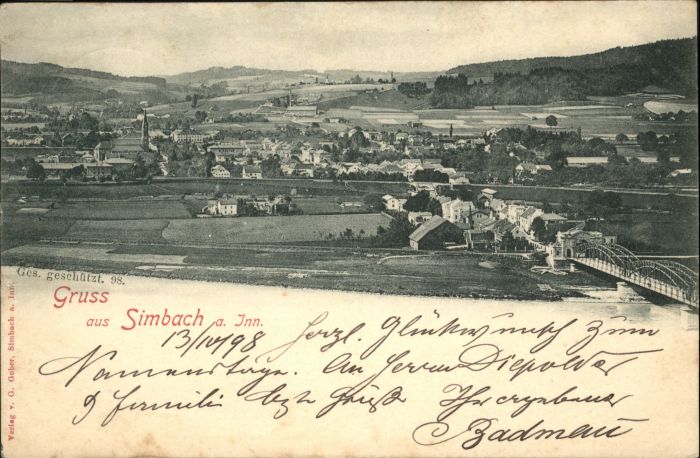 Ges. geschützt. 98.
Gruss
aus Simbach a. Inn.
13/10/98 Herzl. Glückwunsch zum
Namenstage. An Herrn Diepolder
& Familie beste Grüße Ihr ergebener
Badmau
Verlag v. G. Gober, Simbach a. Inn.